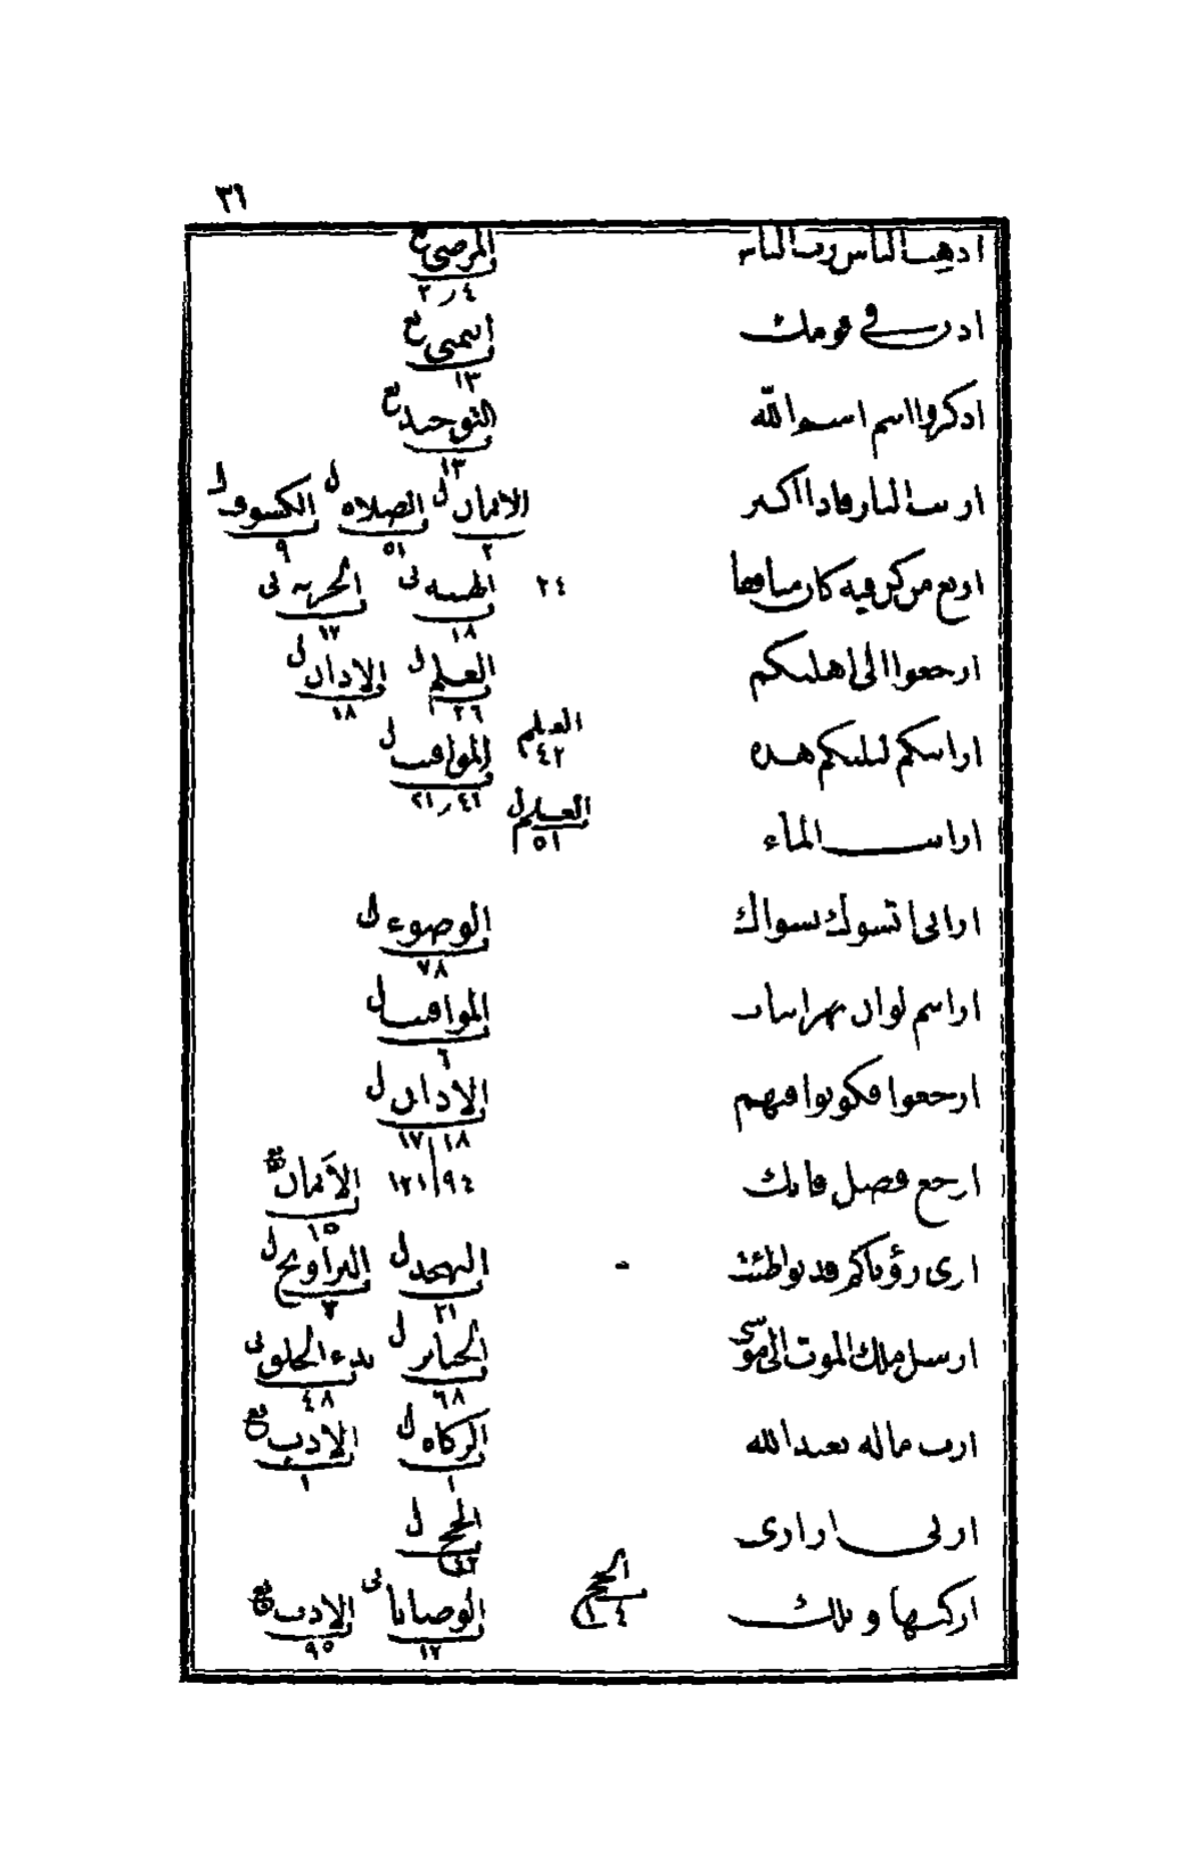 ٣١
اذهب الباس رب الناس المرضى ع ٤ر٢
ادن في قومك التمنى ع ١٣
اذكروا اسم اسم الله التوحيد ع ١٣
اريت النار فاذا اكثر الايمان ل ٢ الصلاة ل ٥١ الكسوف ل ٩
اربع من كن فيه كان منافقا ٢٤ الجزيه نى ١٧
ارجعوا الى اهليكم العلم ل ٢٦ الاذان ل ١٨
ارايتكم ليلتكم هذه العلم ٤٢ المواقيت ل ٤١ر٢١
ارايت الماء العلم ل ٥١
ارانى اتسوك بسواك الوضوء ل ٧٨
ارايتم لو ان نهرا بباب المواقيت ل ٦
ارجعوا فكونوا فيهم الاذان ل ١٨ ١٧
ارجع فصل فانك ٩٤ ١٢١ الأيمان ع ١٥
ارى رؤياكم قد تواطئت التهجد ل ٢١ التراويح ل ٣
ارسل ملك الموت الى موسى الجنايز ل ٦٨ بدء الخلق نى ٤٨
ارب ماله تعبد الله الزكاة ل ١ الادب ع ١
ارنى ازارى الحج ل ٤٢
اركبها ويلك الحج ١٠٤ الوصايا نى ١٢ الادب ع ٩٥